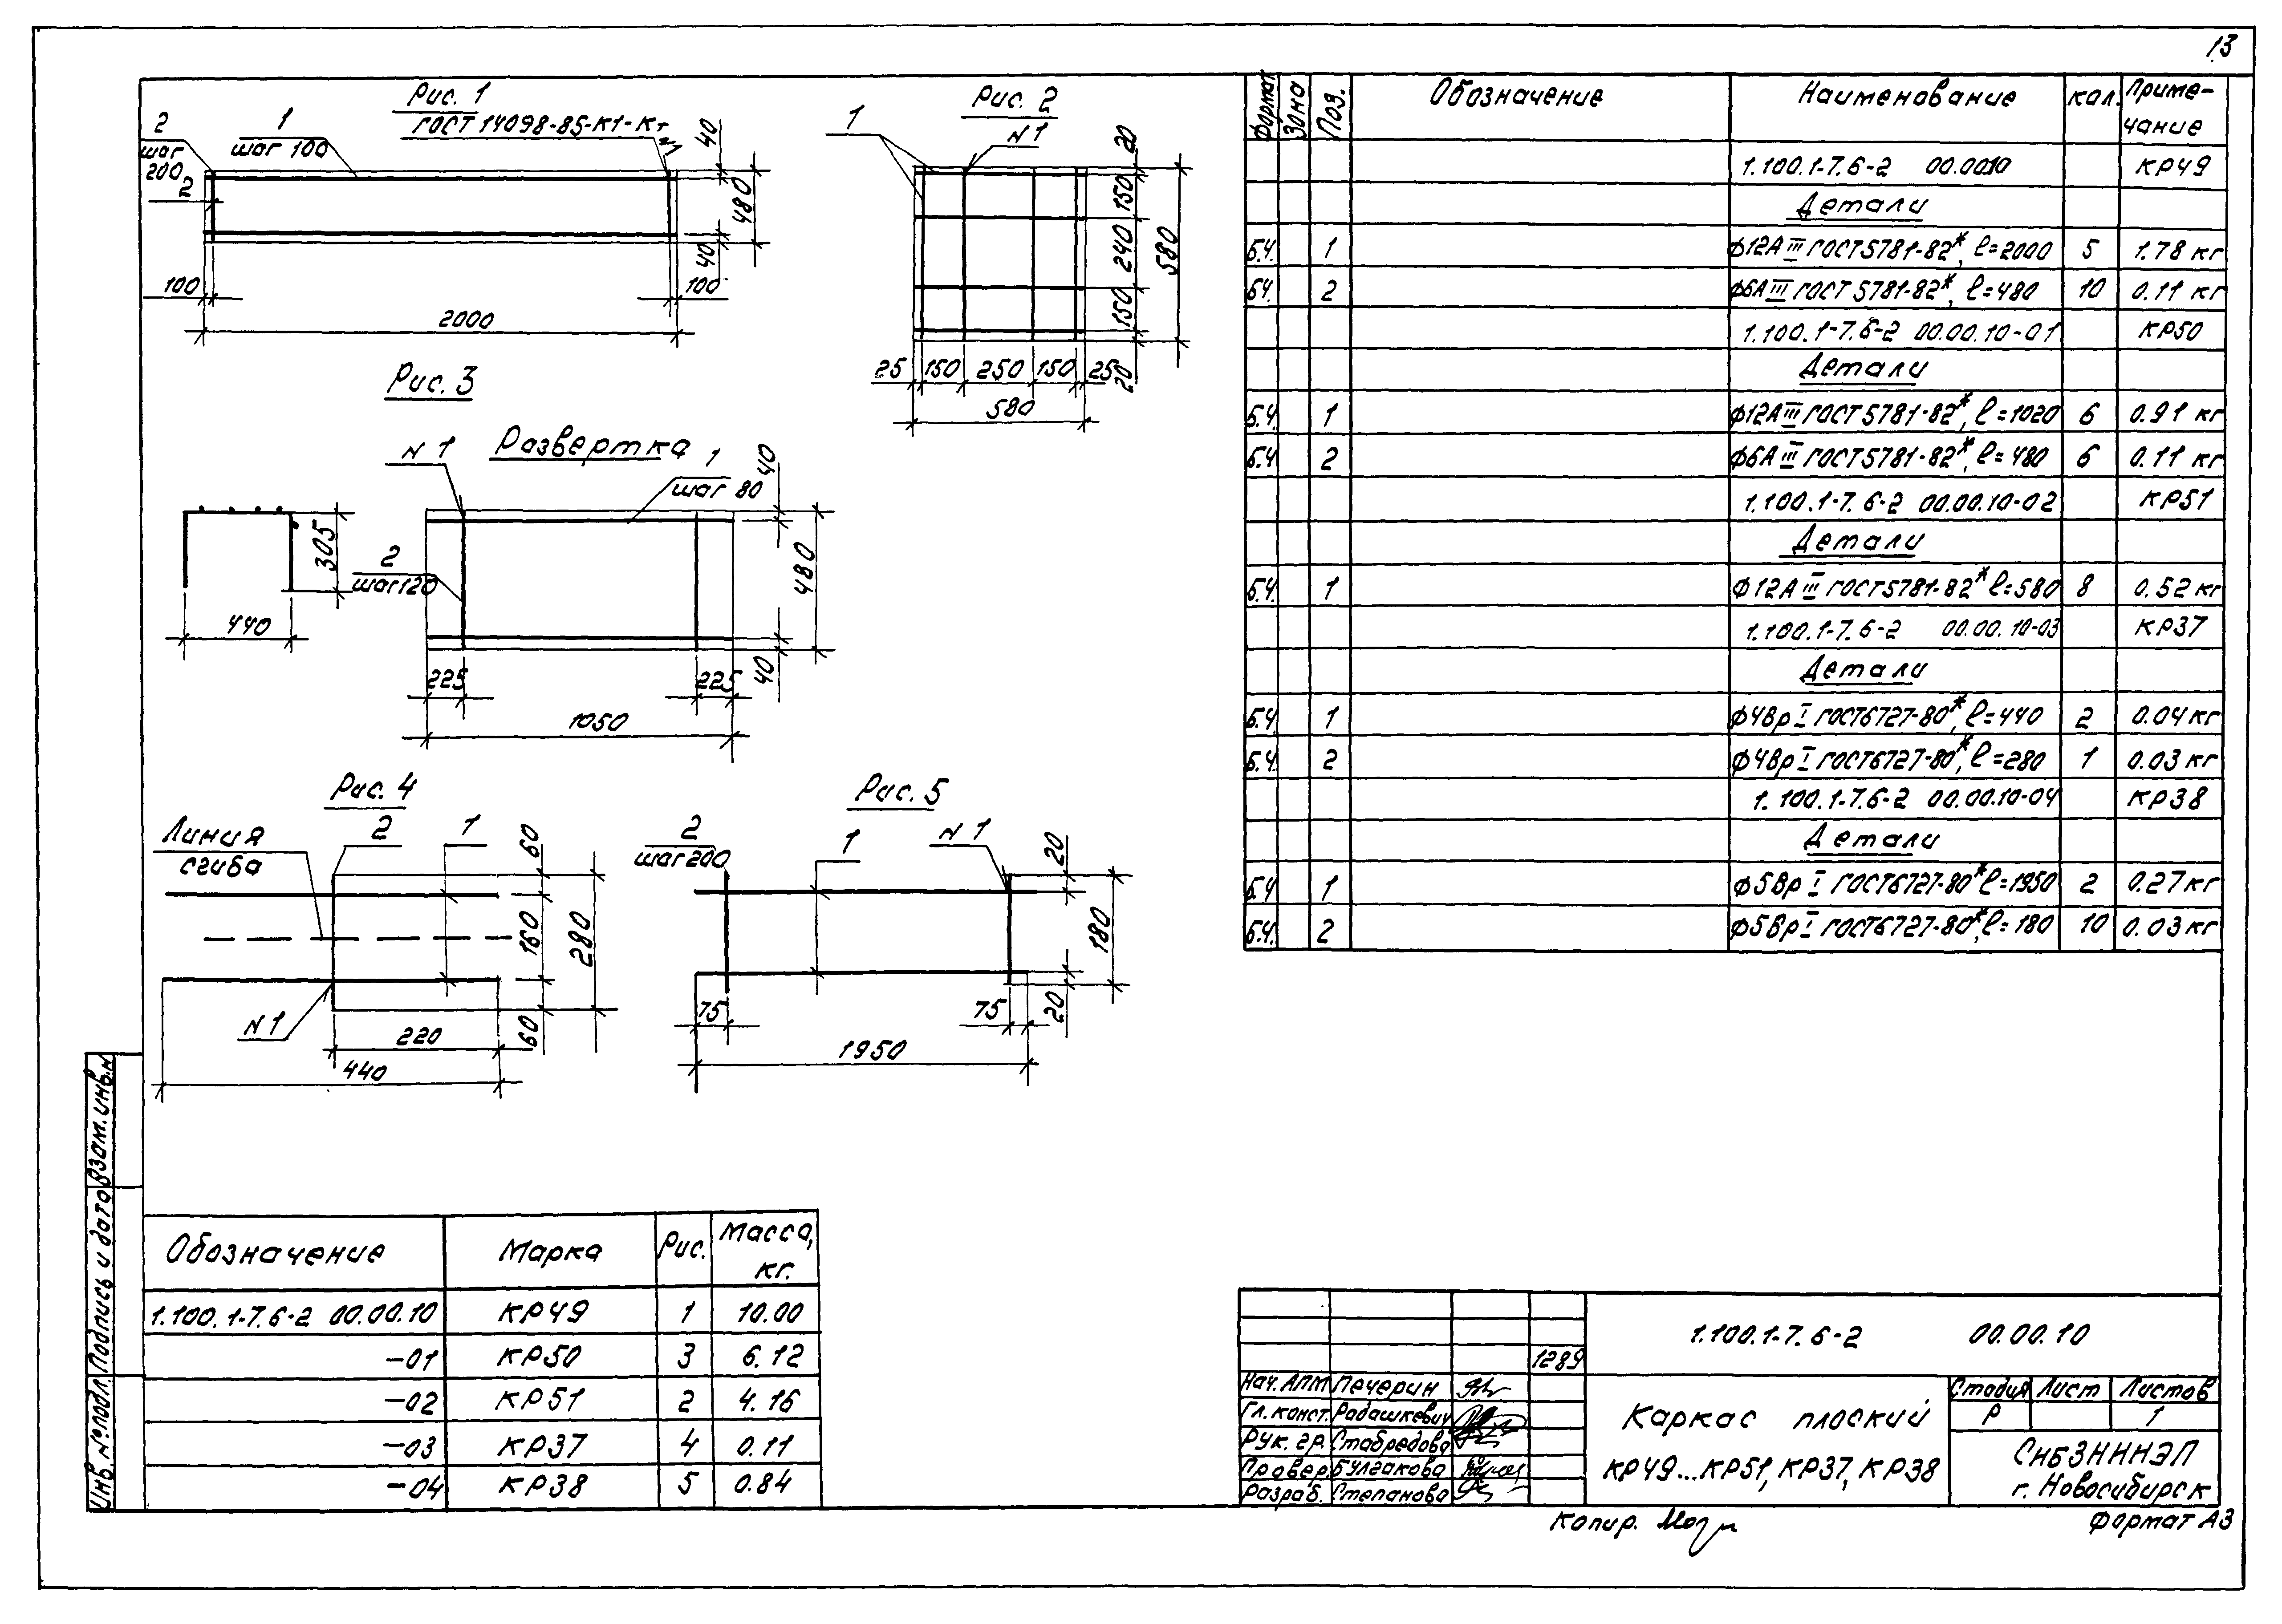 13
Рис. 1
ГОСТ 14098-85-К1-Кт
N1
2
шаг 200
1
шаг 100
2
40
480
40
100
100
2000
Рис. 2
1
N1
20
150
240
150
20
580
25 150 250 150 25
580
Рис. 3
Развертка
N1
1
шаг 80
2
шаг 120
305
440
40
480
40
225
225
1050
Рис. 4
Линия
сгиба
2
1
N1
60
160
60
280
220
440
Рис. 5
2
шаг 200
1
N1
20
180
20
75
75
1950
Формат Зона Поз. Обозначение Наименование Кол. Приме-
чание
1.100.1-7.6-2 00.00.10 КР49
Детали
Б.Ч. 1 Ф12АIII ГОСТ5781-82*, ℓ=2000 5 1.78 кг
Б.Ч. 2 Ф6АIII ГОСТ5781-82*, ℓ=480 10 0.11 кг
1.100.1-7.6-2 00.00.10-01 КР50
Детали
Б.Ч. 1 Ф12АIII ГОСТ5781-82*, ℓ=1020 6 0.91 кг
Б.Ч. 2 Ф6АIII ГОСТ5781-82*, ℓ=480 6 0.11 кг
1.100.1-7.6-2 00.00.10-02 КР51
Детали
Б.Ч. 1 Ф12АIII ГОСТ5781-82* ℓ=580 8 0.52 кг
1.100.1-7.6-2 00.00.10-03 КР37
Детали
Б.Ч. 1 Ф4ВрI ГОСТ6727-80*, ℓ=440 2 0.04 кг
Б.Ч. 2 Ф4ВрI ГОСТ6727-80*, ℓ=280 1 0.03 кг
1.100.1-7.6-2 00.00.10-04 КР38
Детали
Б.Ч. 1 Ф5ВрI ГОСТ6727-80* ℓ=1950 2 0.27 кг
Б.Ч. 2 Ф5ВрI ГОСТ6727-80*, ℓ=180 10 0.03 кг
Обозначение Марка Рис. Масса,
кг.
1.100.1-7.6-2 00.00.10 КР49 1 10.00
-01 КР50 3 6.12
-02 КР51 2 4.16
-03 КР37 4 0.11
-04 КР38 5 0.84
Взам.инв.н
Подпись и дата
Инв.№подл.
1289
1.100.1-7.6-2 00.00.10
Нач.АПМ Печерин
Гл.конст. Радашкевич
Рук.гр. Стабредова
Провер. Булгакова
Разраб. Степанова
Каркас плоский
КР49...КР51, КР37, КР38
Стадия Лист Листов
Р 1
СибЗНИИЭП
г. Новосибирск
Копир.
Формат А3